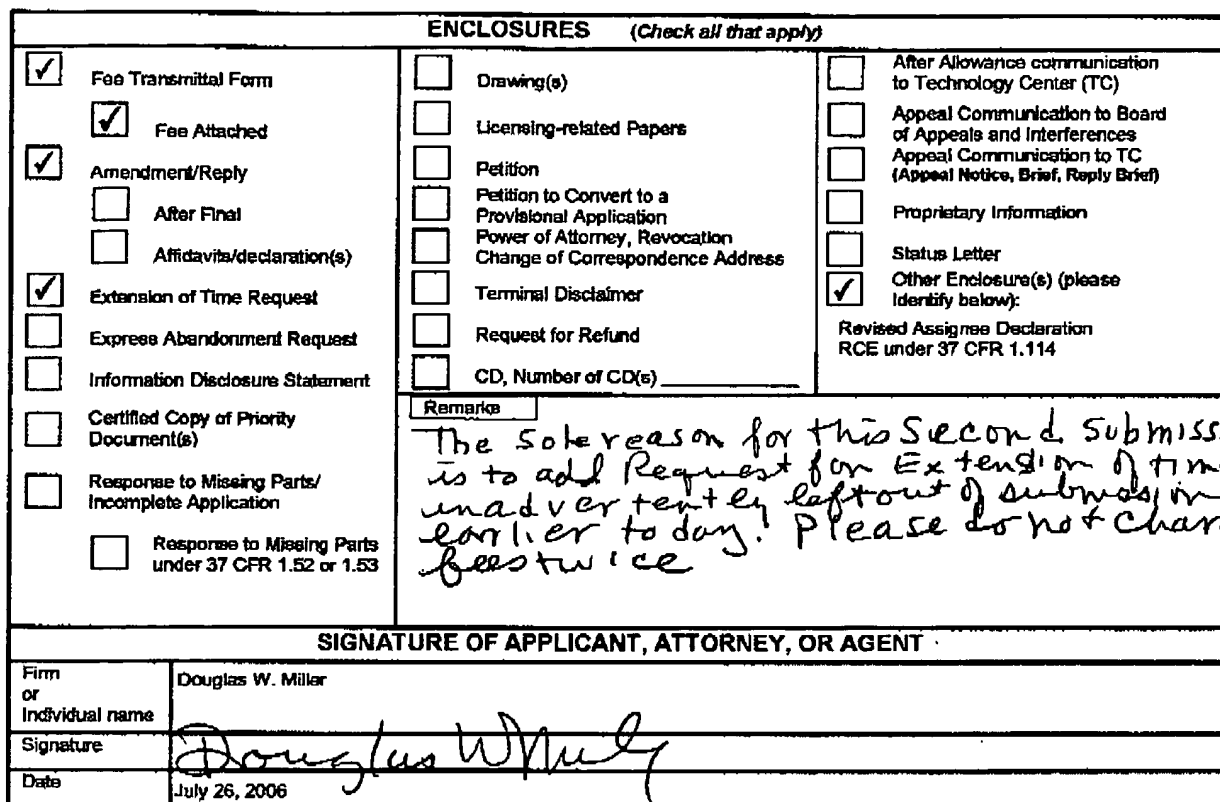 ENCLOSURES (Check all that apply)
Fee Transmittal Form
Fee Attached
Amendment/Reply
After Final
Affidavits/declaration(s)
Extension of Time Request
Express Abandonment Request
Information Disclosure Statement
Certified Copy of Priority
Document(s)
Response to Missing Parts/
Incomplete Application
Response to Missing Parts
under 37 CFR 1.52 or 1.53
Drawing(s)
Licensing-related Papers
Petition
Petition to Convert to a
Provisional Application
Power of Attorney, Revocation
Change of Correspondence Address
Terminal Disclaimer
Request for Refund
CD, Number of CD(s)
After Allowance communication
to Technology Center (TC)
Appeal Communication to Board
of Appeals and Interferences
Appeal Communication to TC
(Appeal Notice, Brief, Reply Brief)
Proprietary Information
Status Letter
Other Enclosure(s) (please
Identify below):
Revised Assignee Declaration
RCE under 37 CFR 1.114
Remarks
The sole reason for this Second Submiss
is to add Request for Extension of tim
inadvertently left out of submission
earlier today. Please do not char
fees twice
SIGNATURE OF APPLICANT, ATTORNEY, OR AGENT
Firm
or
Individual name
Douglas W. Miller
Signature
Douglas W
Date
July 26, 2006